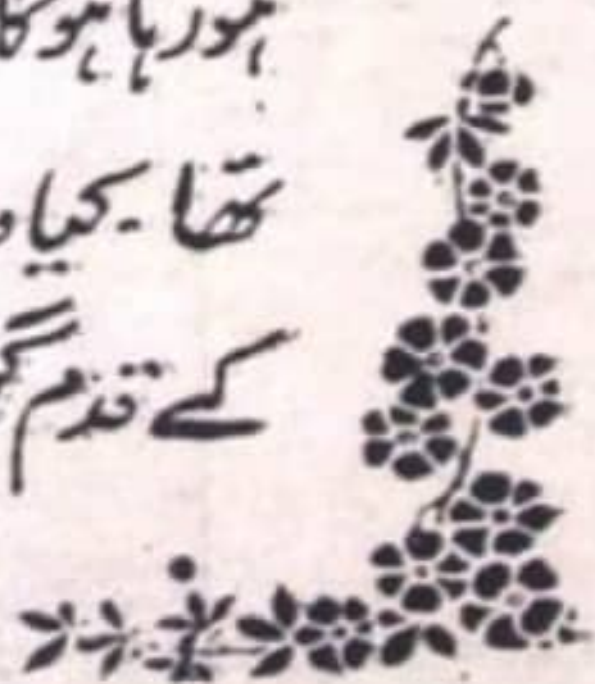 ہو رہا ہو گا
تھا ۔ کیا
کے قدم